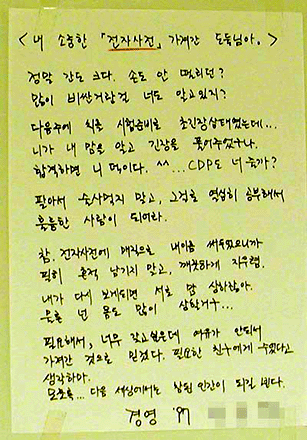 < 내 소중한 「전자사전」 가져간 도둑님아. >
정말 간도 크다. 손도 안 떨리던?
많이 비싼거라는건 너도 알고있지?
다음주에 치를 시험준비로 초긴장상태였는데...
니가 내 맘을 알고 긴장을 풀어주었구나.
합격하면 니 덕이다. ^^ ... CDP도 너 줄까?
팔아서 손사먹지 말고, 그걸로 열심히 공부해서
훌륭한 사람이 되어라.
참, 전자사전에 매직으로 내이름 써두었으니까
필히 흔적 남기지 말고, 깨끗하게 지우렴.
내가 다시 보게되면 서로 맘 상하잖아.
물론 넌 몸도 많이 상할거구...
필요해서, 너무 갖고싶은데 여유가 안되서
가져간 것으로 믿겠다. 필요한 친구에게 주었다고
생각하마.
모쪼록... 다음 세상에서는 참된 인간이 되길 빈다.
경영 '97